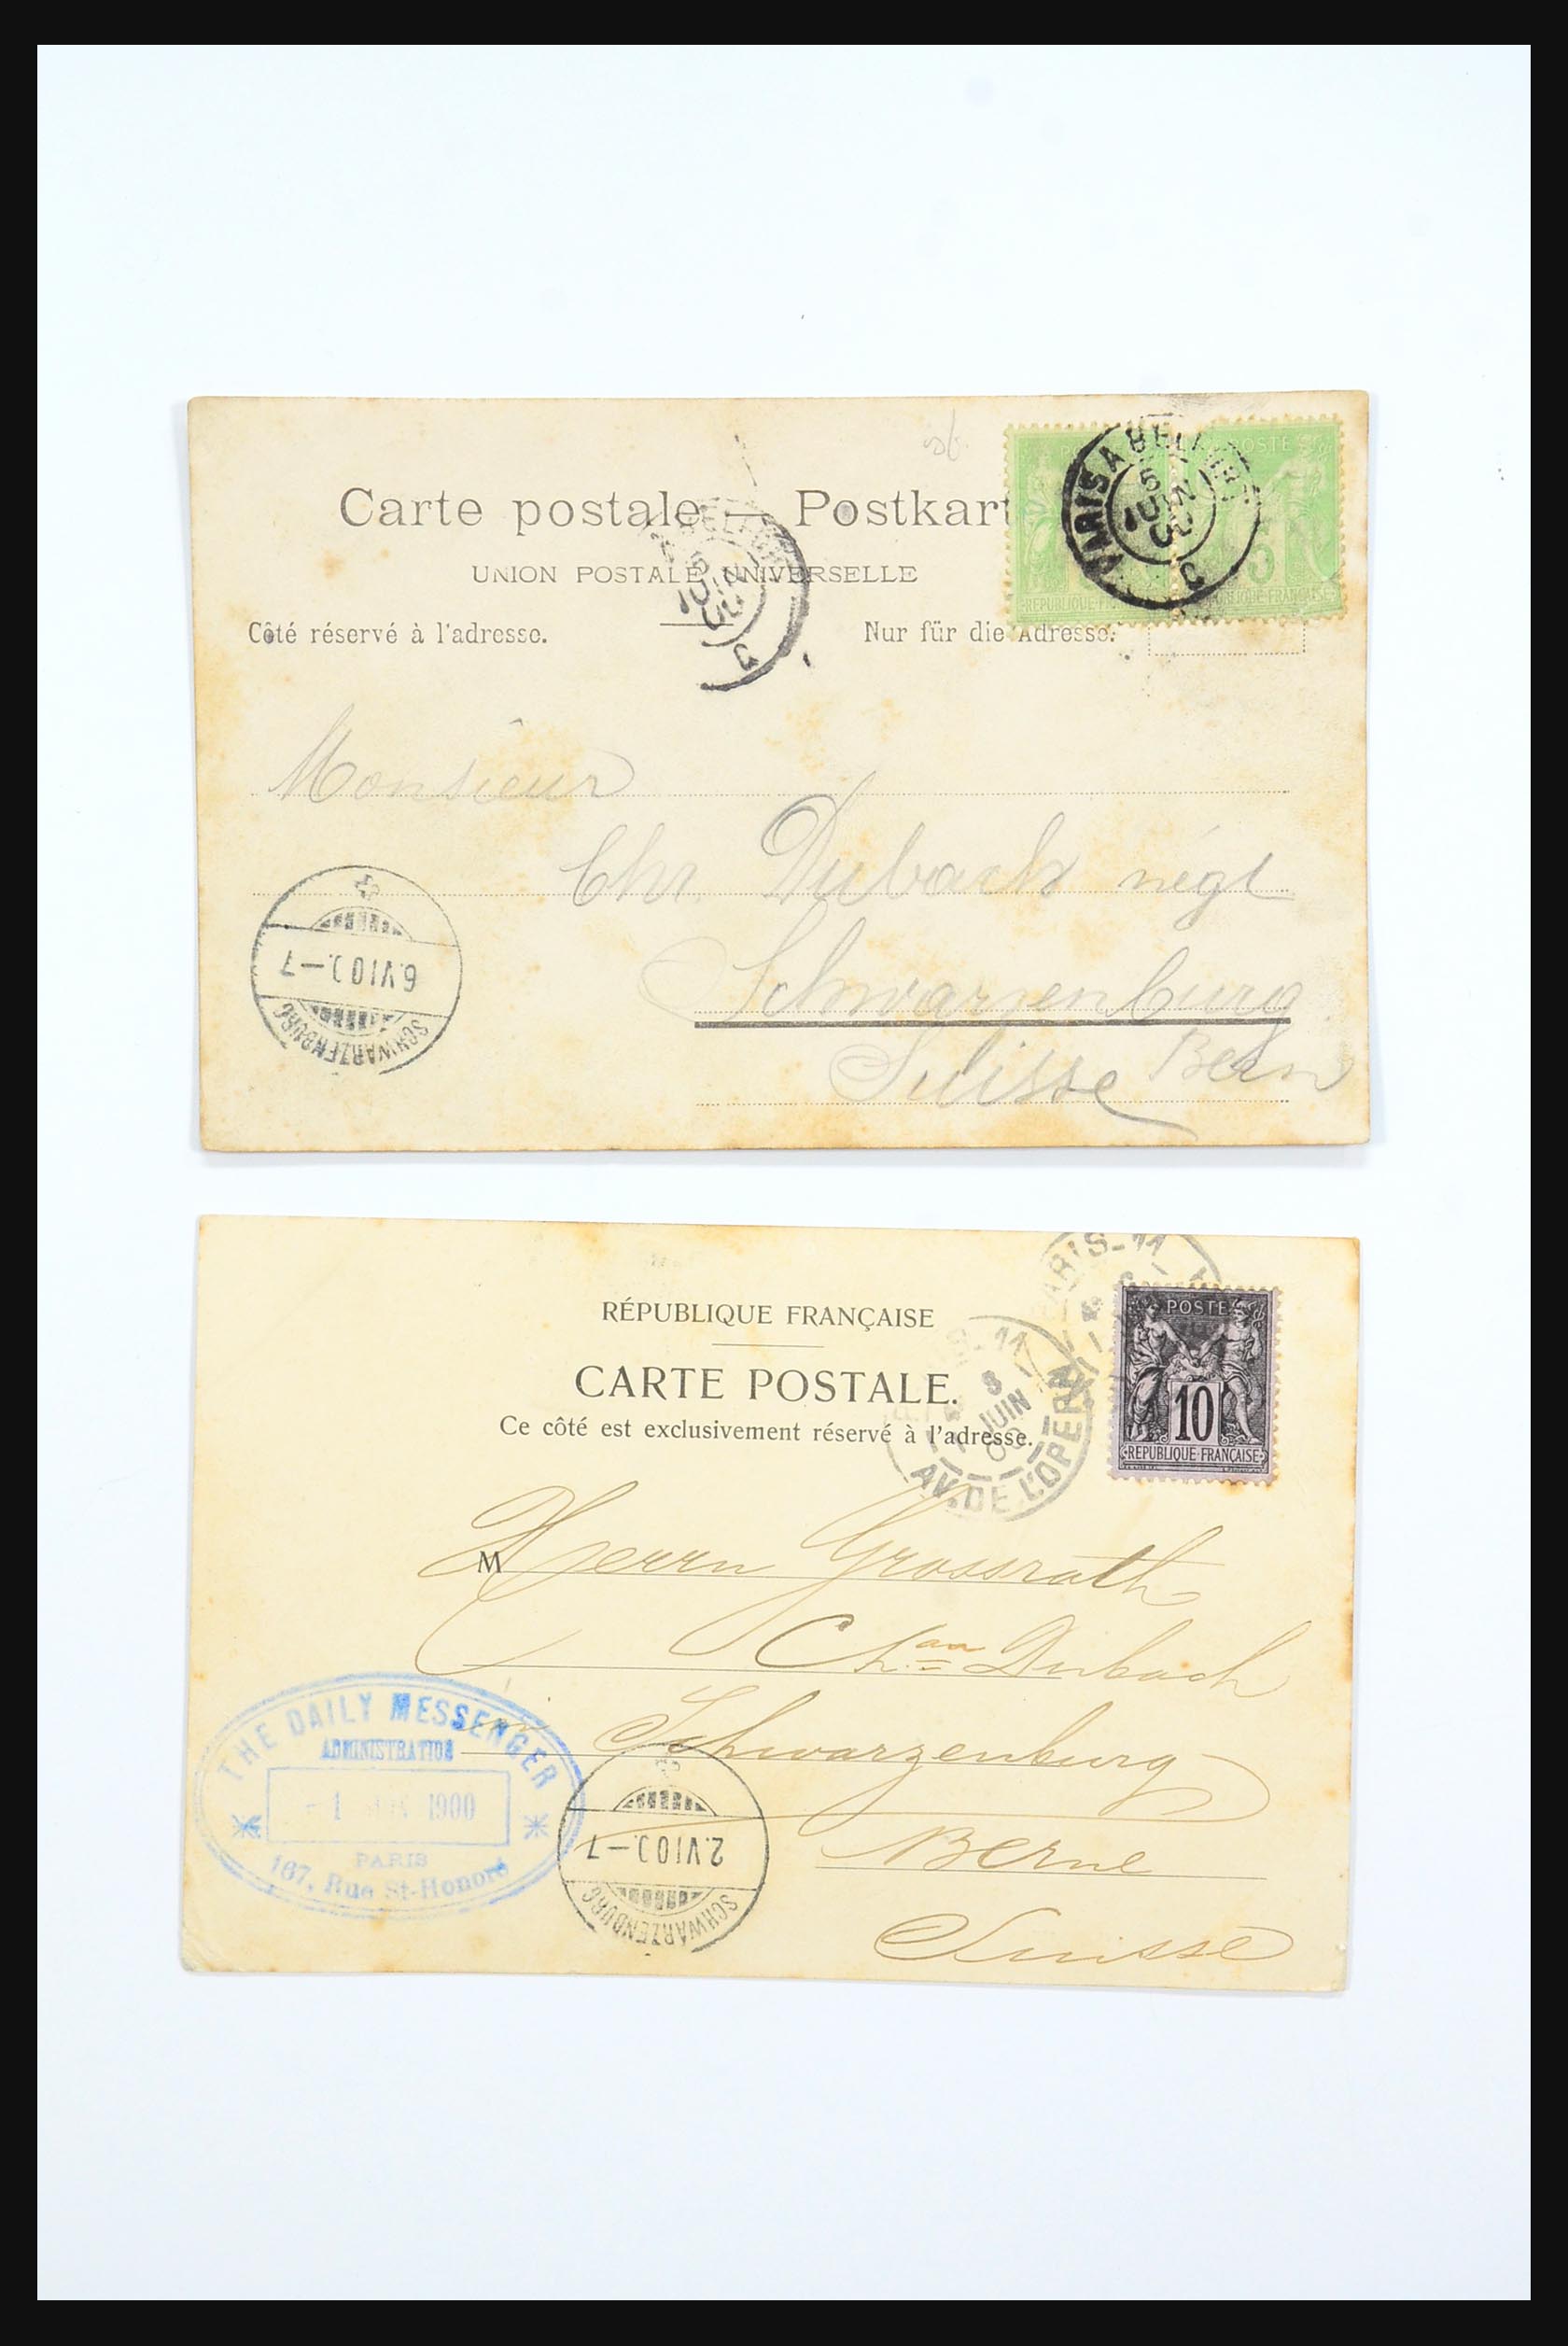 Carte postale — Postkart
UNION POSTALE UNIVERSELLE
Côté réservé à l'adresse.
Nur für die Adresse.
POSTE
5
REPUBLIQUE FRANÇAISE
PARIS A BELFORT
5
JUIN
00
5
JUIN
00
Monsieur
Chr. Dubach négt
Schwarzenburg
Suisse Bern
6.VI.00.–7
SCHWARZENBURG
RÉPUBLIQUE FRANÇAISE
CARTE POSTALE.
Ce côté est exclusivement réservé à l'adresse.
PARIS-11
PARIS-11
JUIN
00
AV. DE L'OPERA
POSTE
10
REPUBLIQUE FRANÇAISE
M
Herrn Grossrath
Chan Dubach
in Schwarzenburg
Berne
Suisse
THE DAILY MESSENGER
ADMINISTRATION
- 1 JUIN 1900
PARIS
167, Rue St-Honoré
2.VI.00.–7
SCHWARZENBURG